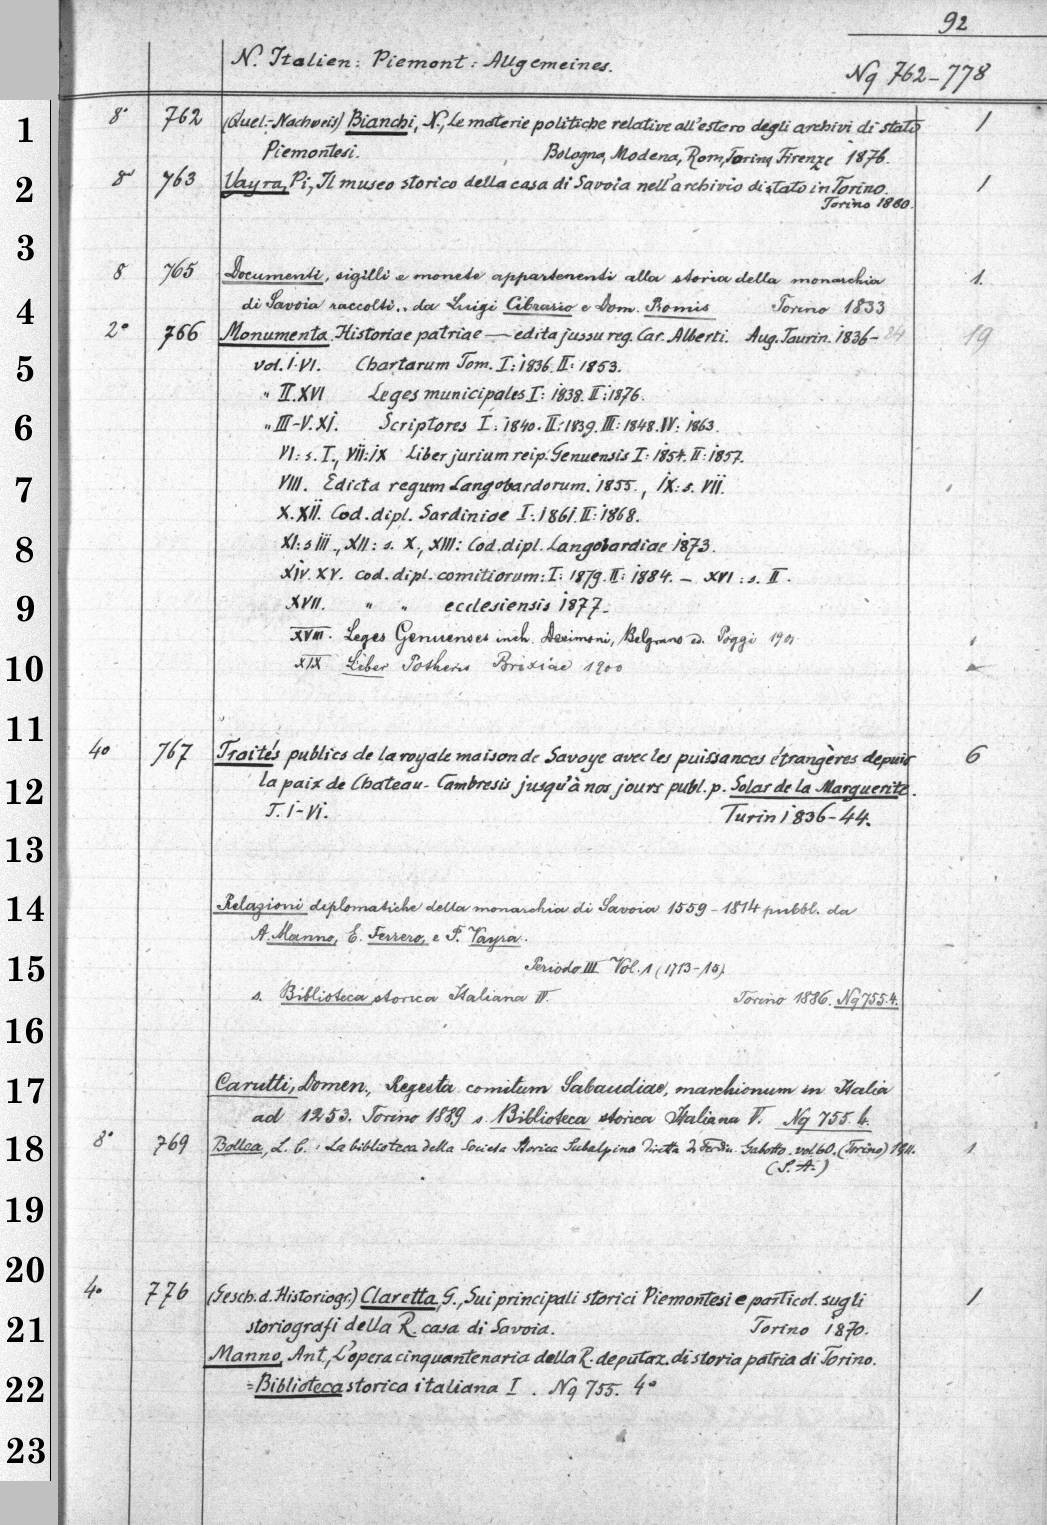 92
N. Italien: Piemont: Allgemeines.
Nq 762-778
1
8° 762 (Quel.-Nachweis) Bianchi, N., Le materie politiche relative all'estero degli archivi di stato 1
Piemontesi. Bologna, Modena, Rom, Torino, Firenze 1876.
2
8° 763 Vayra, Pi., Il museo storico della casa di Savoia nell'archivio di stato in Torino. 1
Torino 1880.
3
8 765 Documenti, sigilli e monete appartenenti alla storia della monarchia 1.
4
di Savoia raccolti .. da Luigi Cibrario e Dom. Promis Torino 1833
2° 766 Monumenta Historiae patriae — edita jussu reg. Car. Alberti. Aug. Taurin. 1836- 19
5
vol. I.VI. Chartarum Tom. I: 1836. II: 1853.
" II.XVI Leges municipales I: 1838. II: 1876.
6
" III-V.XI. Scriptores I: 1840. II: 1839. III: 1848. IV: 1863.
VI: s. I., VII: IX Liber jurium reip. Genuensis I: 1854. II: 1857.
7
VIII. Edicta regum Langobardorum. 1855., IX: s. VII.
X.XII. Cod. dipl. Sardiniae I: 1861. II: 1868.
8
XI: s III., XII: s. X., XIII: Cod. dipl. Langobardiae 1873.
XIV. XV. cod. dipl. comitiorum: I: 1879. II: 1884. — XVI: s. II.
9
XVII. " " ecclesiensis 1877.
XVIII. Leges Genuenses inch. Desimoni, Belgrano ed. Poggi 1901
10
XIX Liber Potheris Brixiae 1900
11
40 767 Traités publics de la royale maison de Savoye avec les puissances étrangères depuis 6
12
la paix de Chateau-Cambresis jusqu'à nos jours publ. p. Solar de la Marguerite.
T. I-VI. Turin 1836-44.
13
14
Relazioni diplomatiche della monarchia di Savoia 1559-1814 pubbl. da
A. Manno, E. Ferrero, e P. Vayra.
15
Periodo III Vol. 1 (1713-15)
s. Biblioteca storica Italiana IV. Torino 1886. Nq 755.4.
16
17
Carutti, Domen., Regesta comitum Sabaudiae, marchionum in Italia
ad 1253. Torino 1889 s. Biblioteca storica Italiana V. Nq 755.4.
18
8° 769 Bollea, L. C., La biblioteca della Societa Storica Subalpina diretta da Ferdin. Gabotto. vol. 60. (Torino) 1911. 1
(S.A.)
19
20
4° 776 (Gesch. d. Historiogr.) Claretta, G., Sui principali storici Piemontesi e particol. sugli 1
21
storiografi della R. casa di Savoia. Torino 1870.
Manno, Ant., L'opera cinquantenaria della R. deputaz. di storia patria di Torino.
22
=Biblioteca storica italiana I. Nq 755. 4°
23